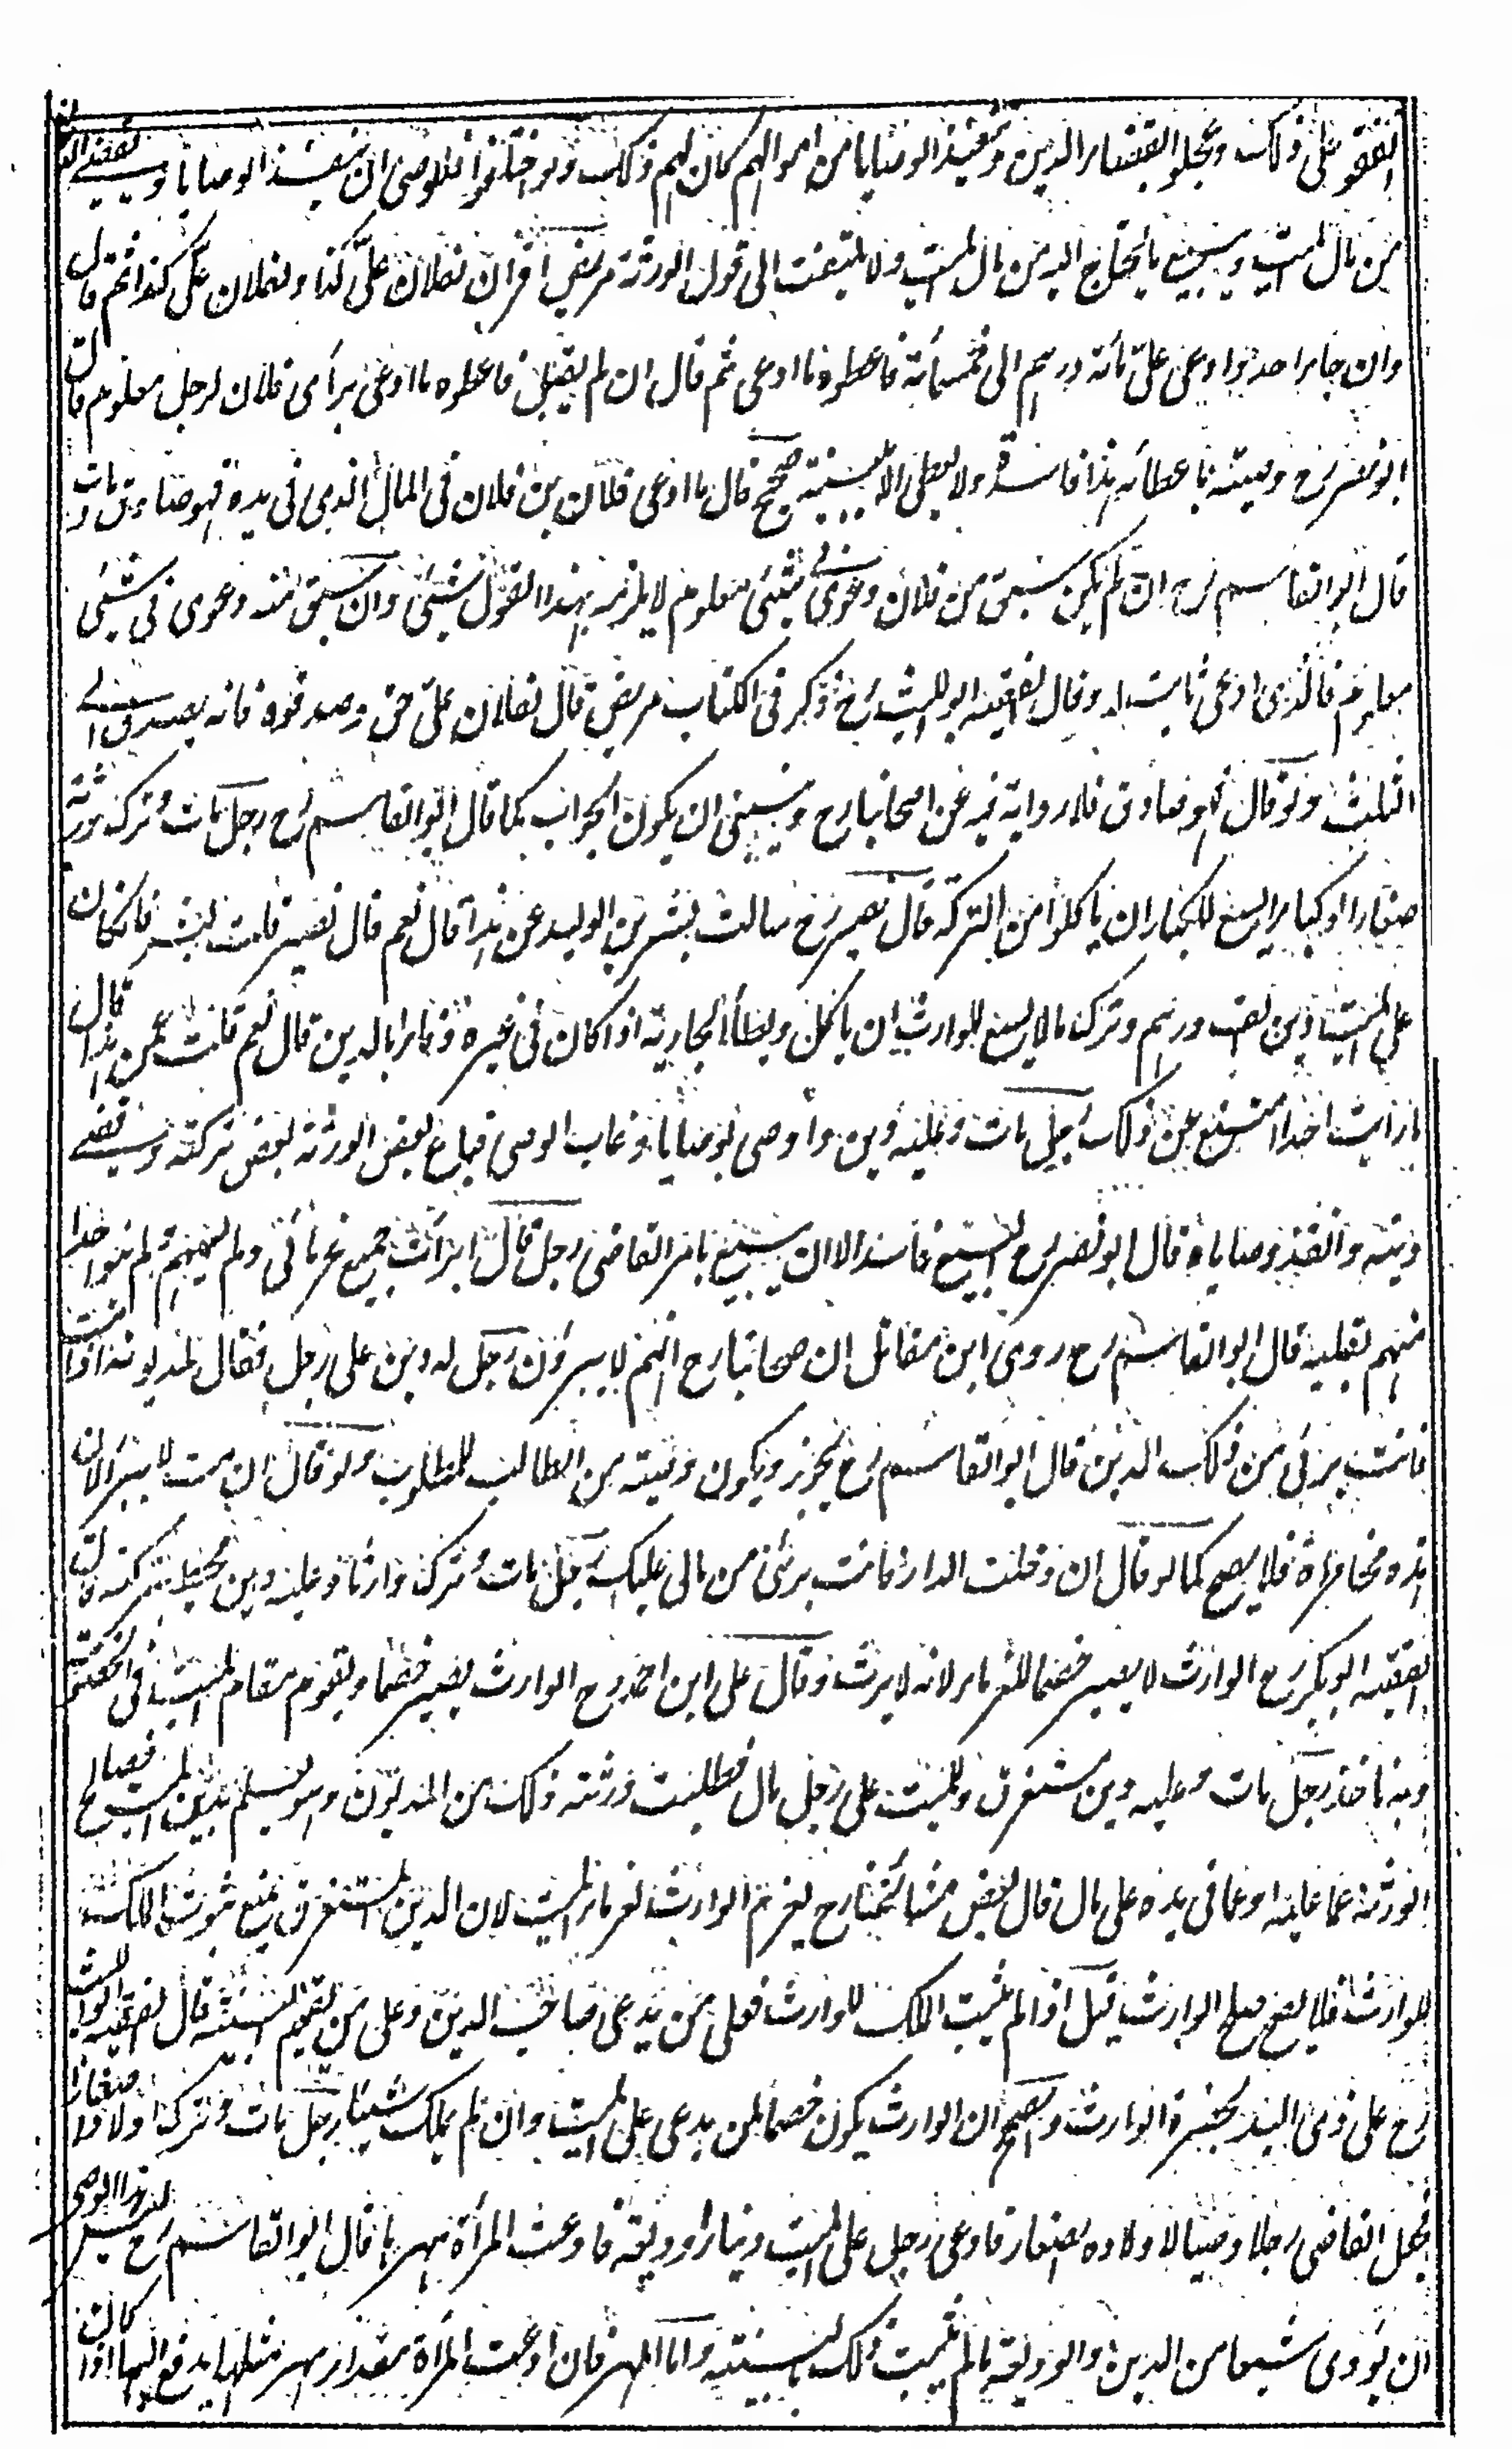 اتفقوا على ذلك وعجلوا القضاء الدين وتنفيذ الوصايا من اموالهم كان لهم ذلك ولو اختلفوا فللوصى ان ينفذ الوصايا ويقضى الدين
من مال الميت ويبيع ما يحتاج اليه من مال الميت ولا يلتفت الى قول الورثة مريض اقر ان لفلان علىّ كذا ولفلان علىّ كذا ثم قال
وان جاء احد وادعى علىّ مائة درهم الى خمسمائة فاعطوه ما ادعى ثم قال ان لم يقبل فاعطوه ما ادعى برأى فلان لرجل معلوم قال
ابو نصر رح وصيته باعطائه هذا فاسدة ولا يعطى الا ببينة صحح قال ما ادعى فلان بن فلان فى المال الذى فى يده فهو صادق ومات
قال ابو القاسم رح ان لم يكن سبق من فلان دعوى فى شئى معلوم لا يلزمه بهذا القول شئى وان سبق منه دعوى فى شئى
معلوم فالذى ادعى ثابت له وقال الفقيه ابو الليث رح ذكر فى الكتاب مريض قال لفلان علىّ حق وصدقوه فانه يصدق الى
الثلث ولو قال فهو صادق فلا رواية فيه عن اصحابنا رح وينبغى ان يكون الجواب كما قال ابو القاسم رح رجل مات وترك ورثة
صغارا او كبارا ايسع للكبار ان ياكلوا من التركة قال نصير رح سالت بشر بن الوليد عن هذا قال نعم قال نصير قلت لبشر فان كان
على الميت دين الف درهم وترك مالا ايسع للوارث ان ياكل ويطأ الجارية اذا كان فى غيره وفاء بالدين قال نعم قلت عمن هذا قال
ما رايت احدا امتنع عن ذلك رجل مات وعليه دين واوصى بوصايا وغاب الوصى فباع بعض الورثة بعض تركته وقضى
دينه وانفذ وصاياه قال ابو نصر رح البيع فاسد الا ان يبيع بامر القاضى رجل قال ابرأت جميع غرمائى ولم يسمهم ولم ينو احدا
منهم بقلبه قال ابو القاسم رح روى ابن مقاتل ان اصحابنا رح انهم لا يبرؤن رجل له دين على رجل فقال لمديونه اذا مت
فانت برئى من ذلك الدين قال ابو القاسم رح يجوز ويكون وصية من الطالب للمطلوب ولو قال ان مت لا يبرأ لان
هذه مخاطرة فلا يصح كما لو قال ان دخلت الدار فانت برئى من مالى عليك رجل مات وترك وارثا وعليه دين محيط بتركته قال
الفقيه ابو بكر رح الوارث لا يصير خصما للغرماء لانه لا يرث وقال على ابن احمد رح الوارث يصير خصما ويقوم مقام الميت فى الخصومة
وبه ناخذ رجل مات وعليه دين مستغرق وللميت على رجل مال فطلبت ورثته ذلك من المديون وهو يعلم بدين الميت فصالح
الورثة عما عليه او عما فى يده على مال قال بعض مشائخنا رح يغرم الوارث لغرماء الميت لان الدين المستغرق يمنع ثبوت الملك
للوارث فلا يصح صلح الوارث قيل اذا لم يثبت الملك للوارث فعلى من يدعى صاحب الدين وعلى من يقيم البينة قال الفقيه ابو الليث
رح على ذى اليد بحضرة الوارث والصحيح ان الوارث يكون خصما لمن يدعى على الميت وان لم يملك شيئا رجل مات وترك اولادا صغارا
فجعل القاضى رجلا وصيا لاولاده الصغار فادعى رجل على الميت دينا او وديعة فادعت المرأة مهرها قال ابو القاسم رح ليس لهذا الوصى
ان يؤدى شيئا من الدين والوديعة ما لم يثبت ذلك بالبينة واما المهر فان ادعت المرأة مقدار مهر مثلها يدفع اليها اذا كان